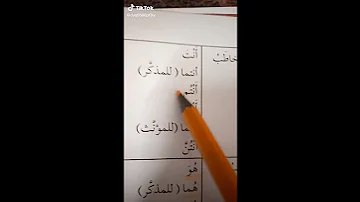 TikTok
أنتَ
خاطَبُ
أنتما (للمذكَّر)
أنْتُم
ـما (للمؤنَّث)
أنْتُنَّ
هُوَ
هُما (للمذكَّر)